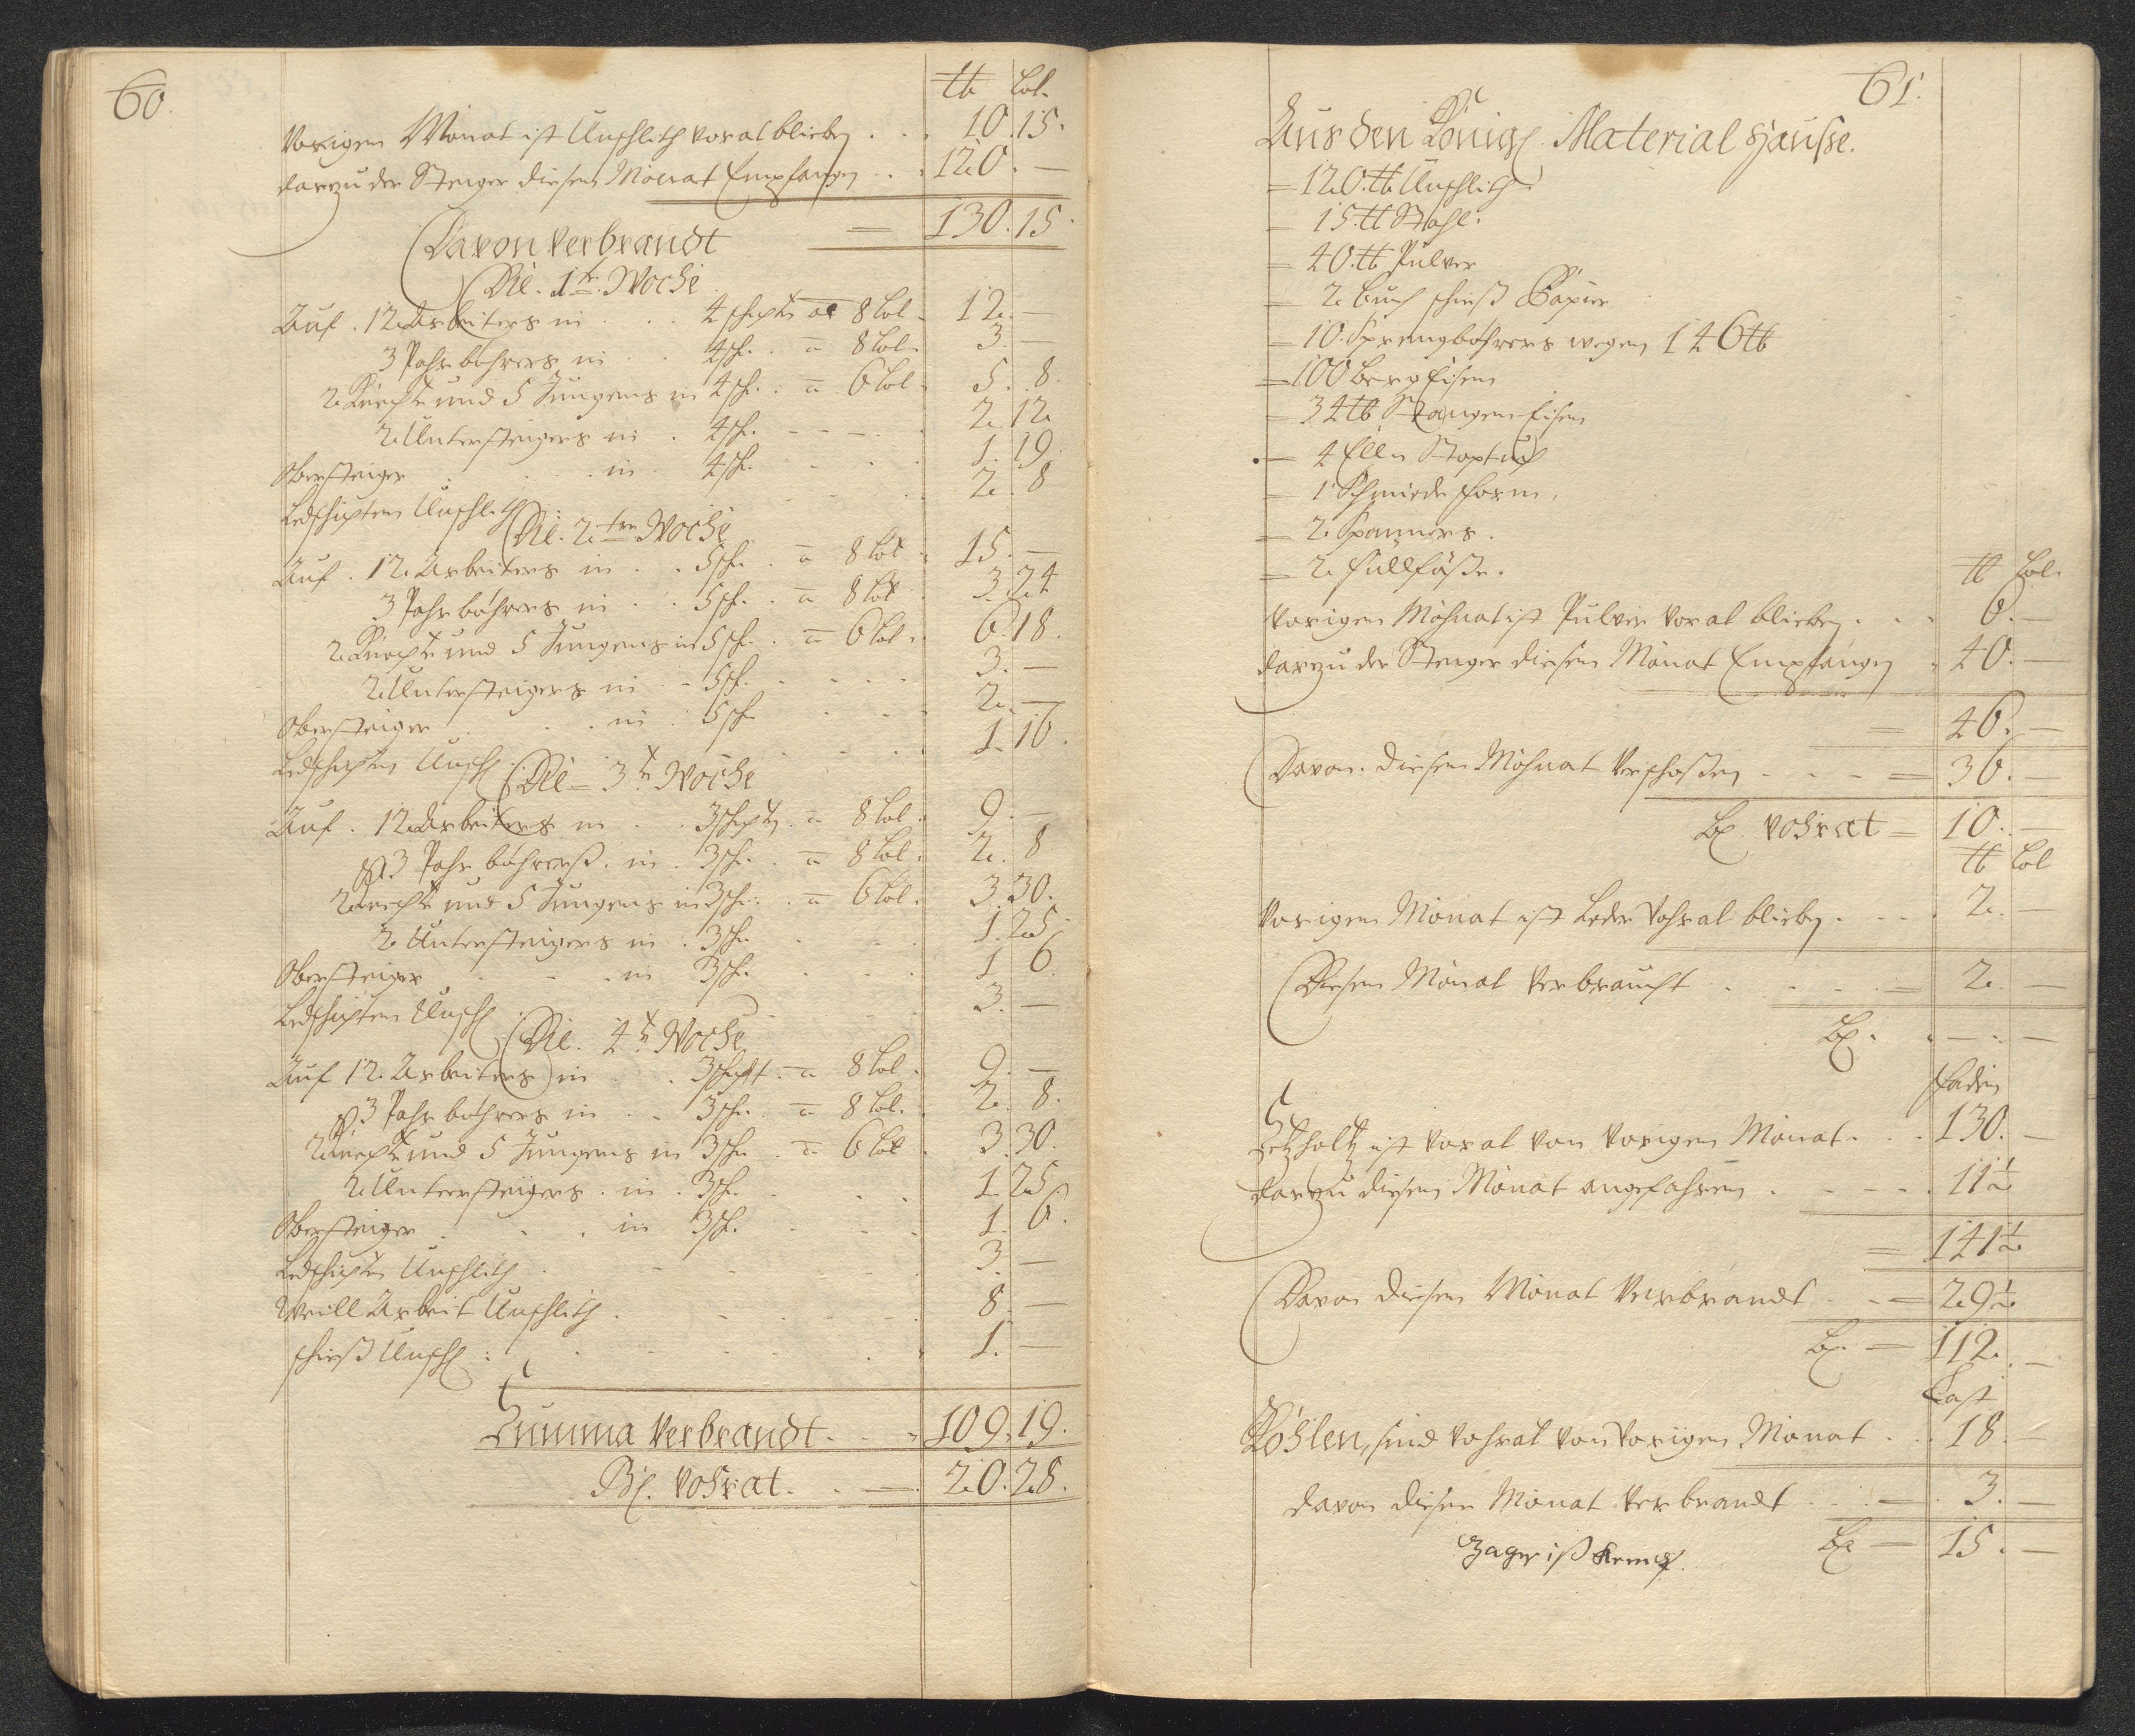 60.
℔ Lot.
Vorigen Monat ist Unschlith vorat blieben . . . 10. 15.
darzu der Steiger diesen Monat Empfangen . . 120. —
= 130. 15.
Davon verbrandt
Die. 1te. Woche
Auf. 12 Arbeiters in . . . 4 schichte a 8 Lot. 12. —
3 Pahr bohrers in . . 4 sch. . a 8 Lot. 3. —
2 Knechte und 5 Jungens in 4 sch. . a 6 Lot. 5. 8.
2 Untersteigers in . 4 sch. - - - . . 2. 12
Obersteiger . . in . 4 sch. . . . 1. 19.
Ledschichten Unschlith . . . 2. 8
Die. 2ten Woche
Auf. 12. Arbeiters in . . 5 sch. . a 8 Lot. 15. —
3 Pahr bohrers in . . 5 sch. . a 8 Lot. 3. 24
2 Knechte und 5 Jungens in 5 sch. . a 6 Lot. 6. 18.
2 Untersteigers in - 5 sch. - - - - 3. —
Obersteiger . . . in . 5 sch. - - - 2. —
Ledschichten Unschl . . . . 1. 16.
Die = 3te Woche
Auf. 12 Arbeiters in . . 3 schichten. a 8 Lot. 9. —
3 Pahr bohrerß. in . 3 sch. . a 8 Lot. 2. 8
2 Knechte und 5 Jungens in 3 sch. . a 6 Lot. 3. 30.
2 Untersteigers in . 3 sch. . . . 1. 25.
Obersteiger - - - in 3 sch. - - . 1. 6.
Ledschichten Unschl . . . 3. —
Die. 4te Woche
Auf 12. Arbeiters in . . 3 schicht. a 8 Lot. 9. —
3 Pahr bohrers in . - 3 sch. . a 8 Lot. 2. 8.
2 Knechte und 5 Jungens in 3 sch. . a 6 Lot. 3. 30.
2 Untersteigers. in . 3 sch. . . . 1. 25
Obersteiger . . . in 3 sch. - - . 1. 6.
Ledschichten Unschlith . - - - . 3. —
Weill Arbeit Unschlith . - - - - 8. —
schieß Unschl : . - - - . 1. —
Summa Verbrandt . - - 109. 19.
Bl. Vohrat. . — 20. 28.
61.
Aus den Königl. Material Hausse.
= 120. ℔ Unschlith.
= 15. ℔ Stahl.
= 40. ℔ Pulver
= 2. Buch schieß Papier
= 10. Sprengbohrers wegen 146 ℔
= 100 Berg Eisen
= 34 ℔ Stangen Eisen
= 4 Elln
= 1 Schmiede Form.
= 2. Spanners.
= 2. Füllfäße.
℔ Lot.
Vorigen Mohnat ist Pulver vorat blieben . . . 6. —
darzu der Steiger diesen Monat Empfangen . 40. —
= 46. —
Davon. diesen Mohnat Verschoßen - - - = 36. —
Bl. Vohrat = 10. —
℔ Lot
Vorigen Monat ist Leder Vohrat blieben . - - . 2. —
Diesen Monat Verbraucht . - - - = 2. —
Bl. . — . —
Faden
Setzholtz ist Vorat von Vorigen Monat . . . 130. —
darzu diesen Monat angefahren . - - - . 11½
= 141½
Davon diesen Monat Verbrandt - - = 29½
Bl. = 112. —
Last
Kohlen, sind Vohrat von Vorigen Monat . . 18. —
davon diesen Monat Verbrandt . . . — . 3. —
Bl — 15. —